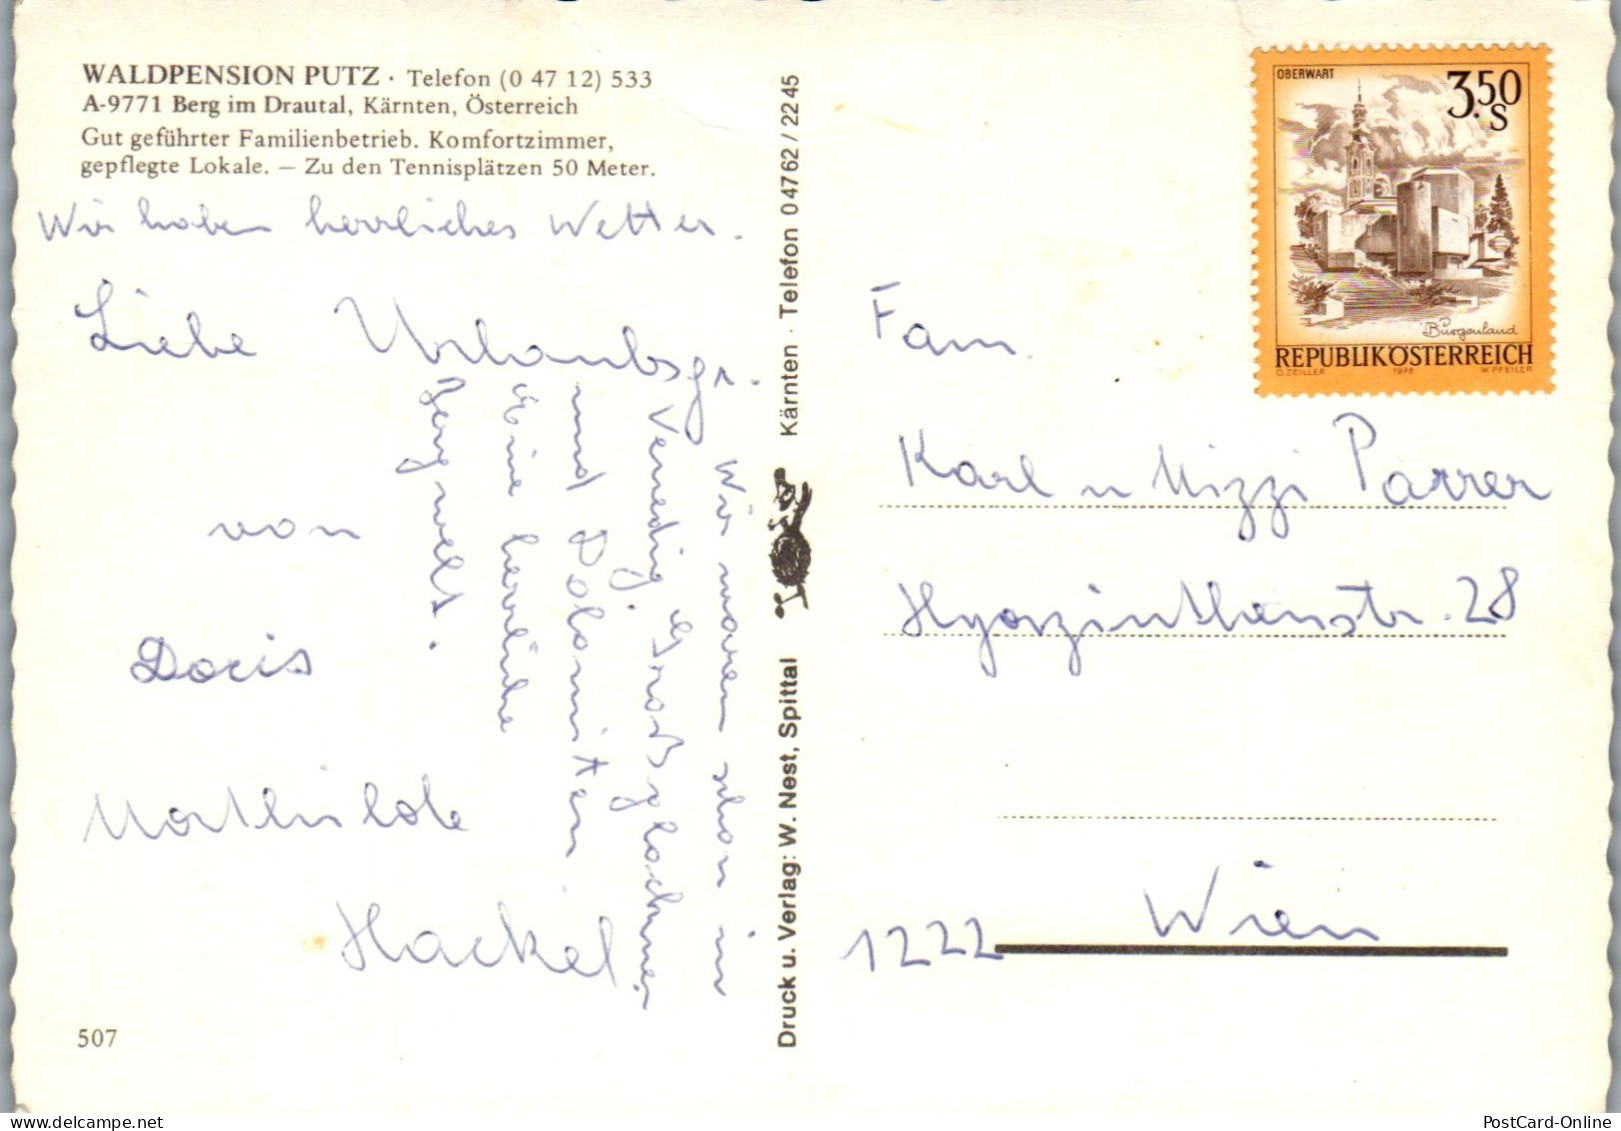 WALDPENSION PUTZ · Telefon (0 47 12) 533
A-9771 Berg im Drautal, Kärnten, Österreich
Gut geführter Familienbetrieb. Komfortzimmer,
gepflegte Lokale. — Zu den Tennisplätzen 50 Meter.
Wir haben herrliches Wetter.
Liebe Urlaubsgr.
von
Doris
Mathilde
Hackel
Wir waren schon in
Venedig, Großglockner
und Dolomiten
Eine herrliche
Bergwelt.
507
Druck u. Verlag: W. Nest, Spittal
Kärnten · Telefon 0 47 62 / 22 45
OBERWART
3.50
S
Burgenland
REPUBLIK ÖSTERREICH
O. ZEILLER 1978 W. PFEILER
Fam.
Karl u Mizzi Parrer
Hyazinthenstr. 28
1222 Wien
PostCard-Online